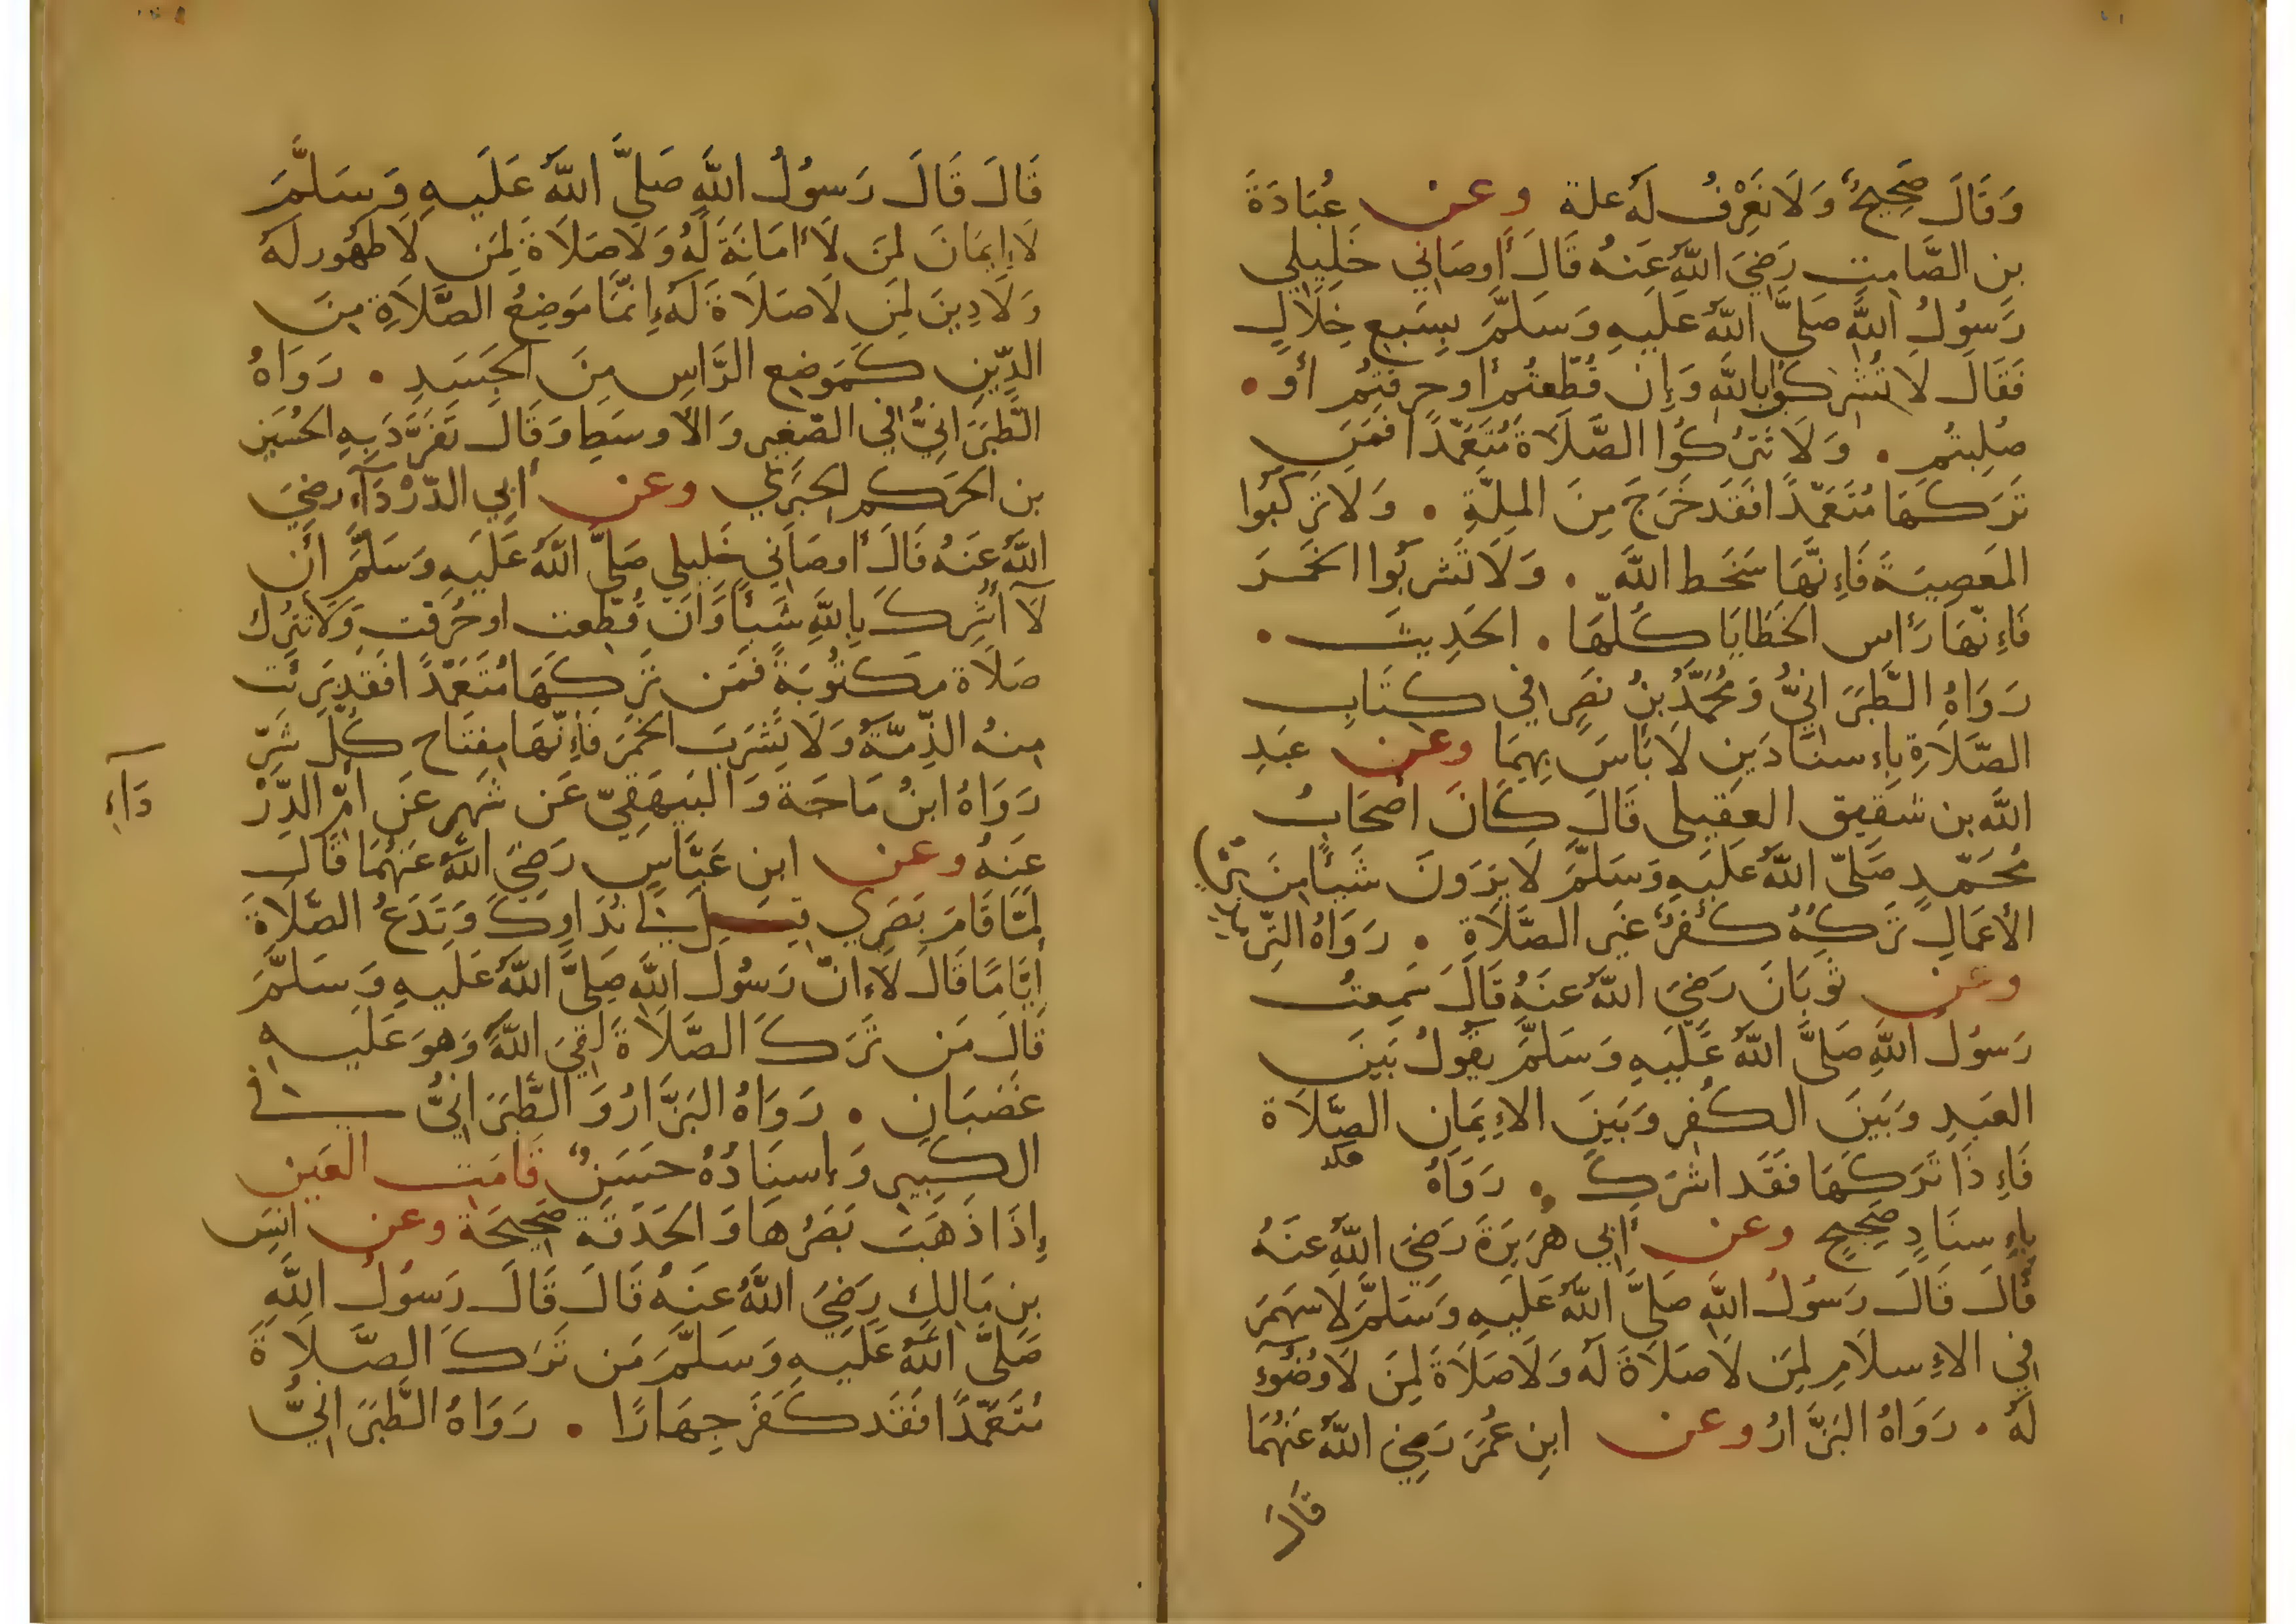 وَقَالَ صَحِيحٌ وَلَا نَعْرِفُ لَهُ علة وعن عُبَادَةَ
بنِ الصَّامِتِ رَضِيَ اللهُ عَنهُ قَالَ أَوصَانِي خَلِيلِي
رَسُولُ اللهِ صَلَّى اللهُ عَلَيهِ وَسَلَّمَ بِسَبعِ خِلَالٍ
فَقَالَ لَا تُشرِكُوا بِاللهِ وَإِن قُطِّعتُم أَو حرِقتُم أَو .
صُلِبتُم . وَلَا تَترُكُوا الصَّلَاةَ مُتَعَمِّدًا فَمَن
تَرَكَهَا مُتَعَمِّدًا فَقَد خَرَجَ مِنَ المِلَّةِ . وَلَا تَركَبُوا
المَعصِيَةَ فَإِنَّهَا سَخَط اللهَ . وَلَا تَشربُوا الخَمرَ
فَإِنَّهَا رَأس الخَطَايَا كُلّهَا . الحَدِيثَ .
رَوَاهُ الطَّبَرَانِيُّ وَمُحَمَّدُ بنُ نَصرٍ فِي كِتَابِ
الصَّلَاةِ بِإِسنَادَينِ لَا بَأسَ بِهِمَا وعن عَبدِ
اللهِ بن شقيق العقيلى قَالَ كَانَ أَصحَابُ
مُحَمَّدٍ صَلَّى اللهُ عَلَيهِ وَسَلَّمَ لَا يَرَونَ شَيئًا مِنَ
الأَعمَالِ تَركُهُ كُفرٌ غَيرَ الصَّلَاةِ . رَوَاهُ التِّر
وعن ثَوبَانَ رَضِيَ اللهُ عَنهُ قَالَ سَمِعتُ
رَسُولَ اللهِ صَلَّى اللهُ عَلَيهِ وَسَلَّمَ يَقُولُ بَينَ
العَبدِ وَبَينَ الكُفرِ وَبَينَ الإِيمَانِ الصَّلَاة
فَإِذَا تَرَكَهَا فَقَد اشرَكَ . رَوَاهُ
بِإِسنَادٍ صَحِيحٍ وعن أَبِي هُرَيرَةَ رَضِيَ اللهُ عَنهُ
قَالَ قَالَ رَسُولُ اللهِ صَلَّى اللهُ عَلَيهِ وَسَلَّمَ لَا سَهمَ
فِي الإِسلَامِ لِمَن لَا صَلَاةَ لَهُ وَلَا صَلَاةَ لِمَن لَا وُضُوءَ
لَهُ . رَوَاهُ البَزَّارُ وعن ابنِ عُمَرَ رَضِيَ اللهُ عَنهُمَا
قَالَ
قَالَ قَالَ رَسُولُ اللهِ صَلَّى اللهُ عَلَيهِ وَسَلَّمَ
لَا إِيمَانَ لِمَن لَا أَمَانَةَ لَهُ وَلَا صَلَاةَ لِمَن لَا طهُور لَهُ
وَلَا دِينَ لِمَن لَا صَلَاةَ لَهُ إِنَّمَا مَوضِعُ الصَّلَاةِ مِنَ
الدِّينِ كَمَوضِعِ الرَّاسِ مِنَ الجَسَدِ . رَوَاهُ
الطَّبَرَانِيُّ فِي الصَّغِيرِ وَالأَوسَطِ وَقَالَ تَفَرَّدَ بِهِ الحُسَين
بن الحَكَم الحِبَرِي وعن أَبِي الدَّردَآءِ رضِيَ
اللهُ عَنهُ قَالَ أَوصَانِي خَلِيلِي صَلَّى اللهُ عَلَيهِ وَسَلَّمَ أَن
لَا أُشرِكَ بِاللهِ شَيئًا وَإن قُطِّعت او حُرِّقت وَلَا تَترُك
صَلَاة مَكتُوبَةً فَمَن تَرَكَهَا مُتَعَمِّدًا فَقَد بَرِئَت
مِنهُ الذِّمَّةُ وَلَا تَشرَبَ الخَمرَ فَإِنَّهَا مِفتَاح كُلِّ شَرٍّ
رَوَاهُ ابنُ مَاجَةَ وَالبَيهَقِيّ عَن شَهرٍ عَن أُمِّ الدَّرْ
دَآءِ
عَنهُ وعن ابنِ عَبَّاسٍ رَضِيَ اللهُ عَنهُمَا قَالَ
لَمَّا قَامَ بَصَرِي قِيلَ نُدَاوِيكَ وَتَدَعُ الصَّلَاةَ
أَيَّامًا قَالَ لَا إِنَّ رَسُولَ اللهِ صَلَّى اللهُ عَلَيهِ وَسَلَّمَ
قَالَ مَن تَرَكَ الصَّلَاةَ لَقِيَ اللهَ وَهوَ عَلَيهِ
غَضبَان . رَوَاهُ البَزَّارُ وَالطَّبَرَانِيُّ فِي
الكَبِيرِ وَإسنَادُهُ حَسَنٌ قَامَت العَين
إِذَا ذَهَبَ بَصَرُهَا وَالحَدَقَة صَحِيحَة وعن أنَس
بنِ مَالِكٍ رَضِيَ اللهُ عَنهُ قَالَ قَالَ رَسُولُ اللهِ
صَلَّى اللهُ عَلَيهِ وَسَلَّمَ مَن تَرَكَ الصَّلَاةَ
مُتَعَمِّدًا فَقَد كَفَرَ جِهَارًا . رَوَاهُ الطَّبَرَانِيُّ